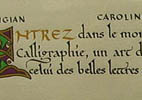 GIAN CAROLIN
ENTREZ dans le mon
Calligraphie, un art d
celui des belles lettres